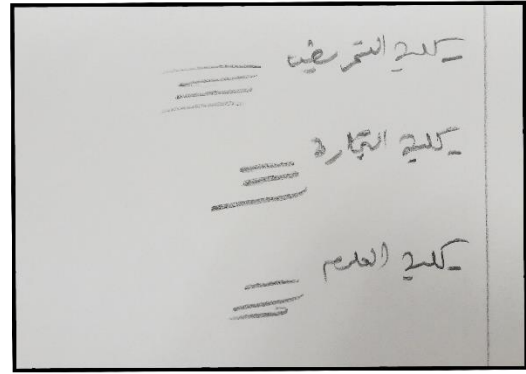 - كلية التمريض
- كلية التجارة
- كلية العلوم